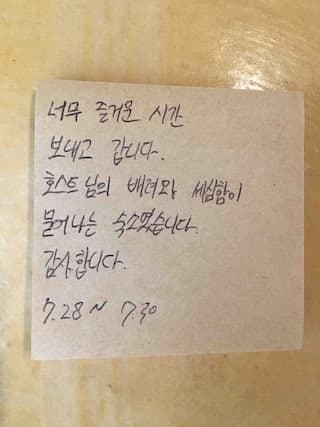 너무 즐거운 시간
보내고 갑니다.
호스트님의 배려와 세심함이
묻어나는 숙소였습니다.
감사합니다.
7.28 ~ 7.30